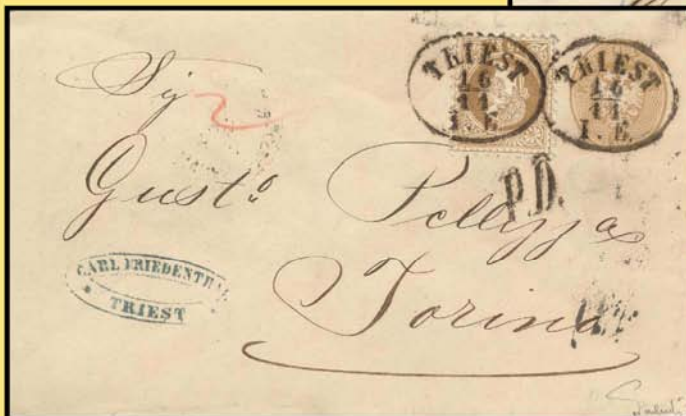 TRIEST
16
11
I. E.
TRIEST
16
11
I. E.
P.D.
Gustº
CARL FRIEDENTHAL
TRIEST
Torino